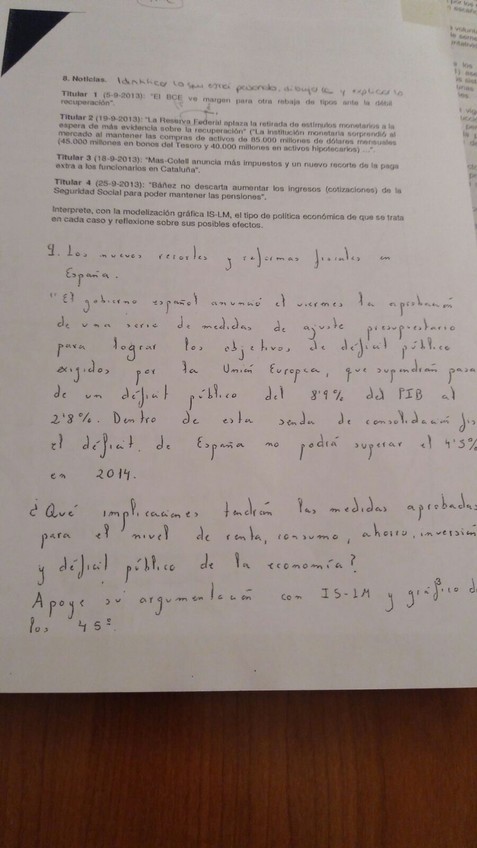 8. Noticias. Identificar lo que está pasando, dibujarlo y explicarlo
Titular 1 (5-9-2013): "El BCE ve margen para otra rebaja de tipos ante la débil
recuperación".
Titular 2 (19-9-2013): "La Reserva Federal aplaza la retirada de estímulos monetarios a la
espera de más evidencia sobre la recuperación" ("La institución monetaria sorprendió al
mercado al mantener las compras de activos de 85.000 millones de dólares mensuales
(45.000 millones en bonos del Tesoro y 40.000 millones en activos hipotecarios) ...".
Titular 3 (18-9-2013): "Mas-Colell anuncia más impuestos y un nuevo recorte de la paga
extra a los funcionarios en Cataluña".
Titular 4 (25-9-2013): "Báñez no descarta aumentar los ingresos (cotizaciones) de la
Seguridad Social para poder mantener las pensiones".
Interprete, con la modelización gráfica IS-LM, el tipo de política económica de que se trata
en cada caso y reflexione sobre sus posibles efectos.
9. Los nuevos recortes y reformas fiscales en
España.
"El gobierno español anunció el viernes la aprobación
de una serie de medidas de ajuste presupuestario
para lograr los objetivos de déficit público
exigidos por la Unión Europea, que supondrán pasar
de un déficit público del 8'9% del PIB al
2'8%. Dentro de esta senda de consolidación fis
el déficit de España no podrá superar el 4'5%
en 2014.
¿Qué implicaciones tendrán las medidas aprobadas
para el nivel de renta, consumo, ahorro, inversión
y déficit público de la economía?
Apoye su argumentación con IS-LM y gráfico de
los 45º